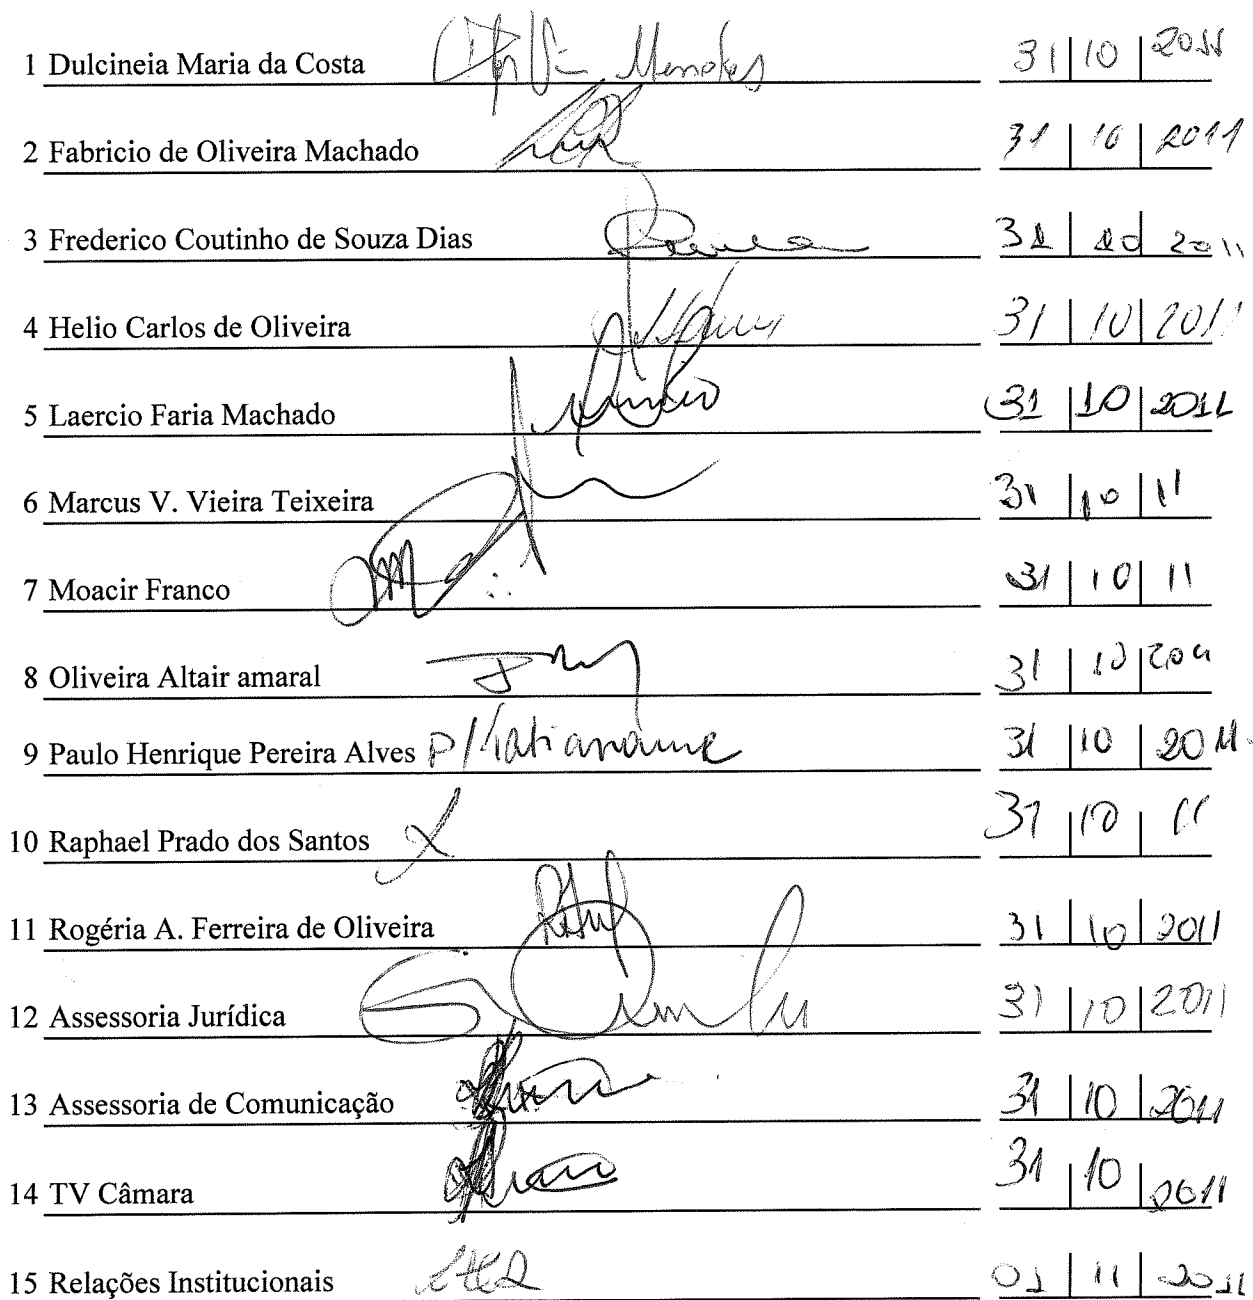 1 Dulcineia Maria da Costa Mendes 31 | 10 | 2011
2 Fabricio de Oliveira Machado 31 | 10 | 2011
3 Frederico Coutinho de Souza Dias 31 | 10 | 2011
4 Helio Carlos de Oliveira 31 | 10 | 2011
5 Laercio Faria Machado 31 | 10 | 2011
6 Marcus V. Vieira Teixeira 31 | 10 | 11
7 Moacir Franco 31 | 10 | 11
8 Oliveira Altair amaral 31 | 10 | 2011
9 Paulo Henrique Pereira Alves P/ 31 | 10 | 2011
10 Raphael Prado dos Santos 31 | 10 | 11
11 Rogéria A. Ferreira de Oliveira 31 | 10 | 2011
12 Assessoria Jurídica 31 | 10 | 2011
13 Assessoria de Comunicação 31 | 10 | 2011
14 TV Câmara 31 | 10 | 2011
15 Relações Institucionais 01 | 11 | 2011